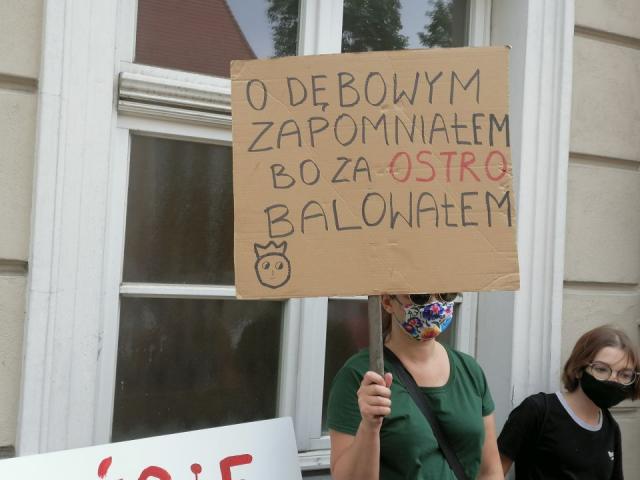 O DĘBOWYM
ZAPOMNIAŁEM
BO ZA OSTRO
BALOWAŁEM